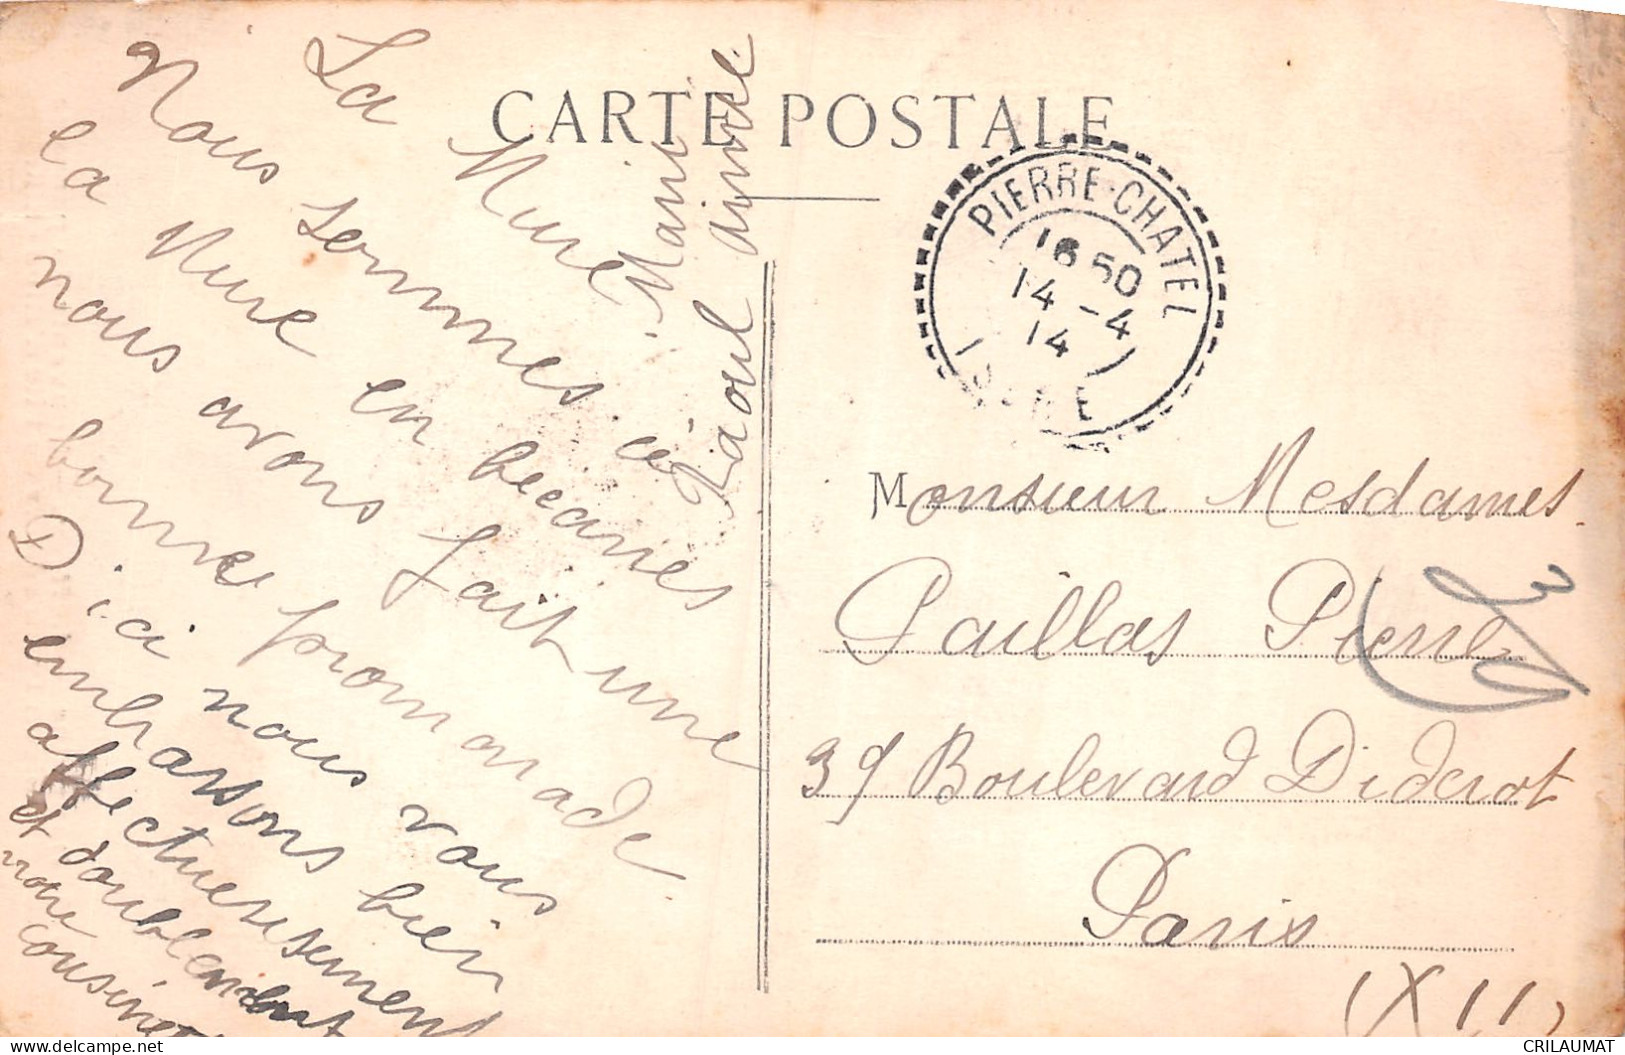 CARTE POSTALE
La Mure.
Nous sommes à
la Mure en bécanes
nous avons fait une
bonne promenade.
D'ici nous vous
embrassons bien
affectueusement
et doublement
votre
cousine
Raoul
PIERRE-CHATEL
16 50
14 - 4
14
ISERE
Monsieur Mesdames
Paillas Pierre
39 Boulevard Diderot
Paris
(XII)
CRILAUMAT